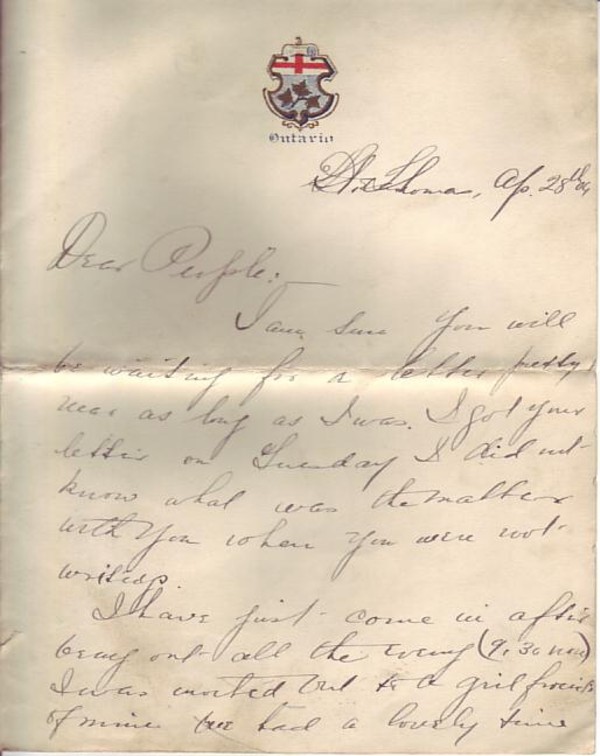 Ontario
St. Thomas, Ap. 28th 04
Dear People:
I am sure you will
be waiting for a letter pretty
near as long as I was. I got your
letter on Tuesday I did not
know what was the matter
with you when you were not
writing.
I have just come in after
being out all the evening (9.30 now)
I was invited out to a girl friends
of mine we had a lovely time